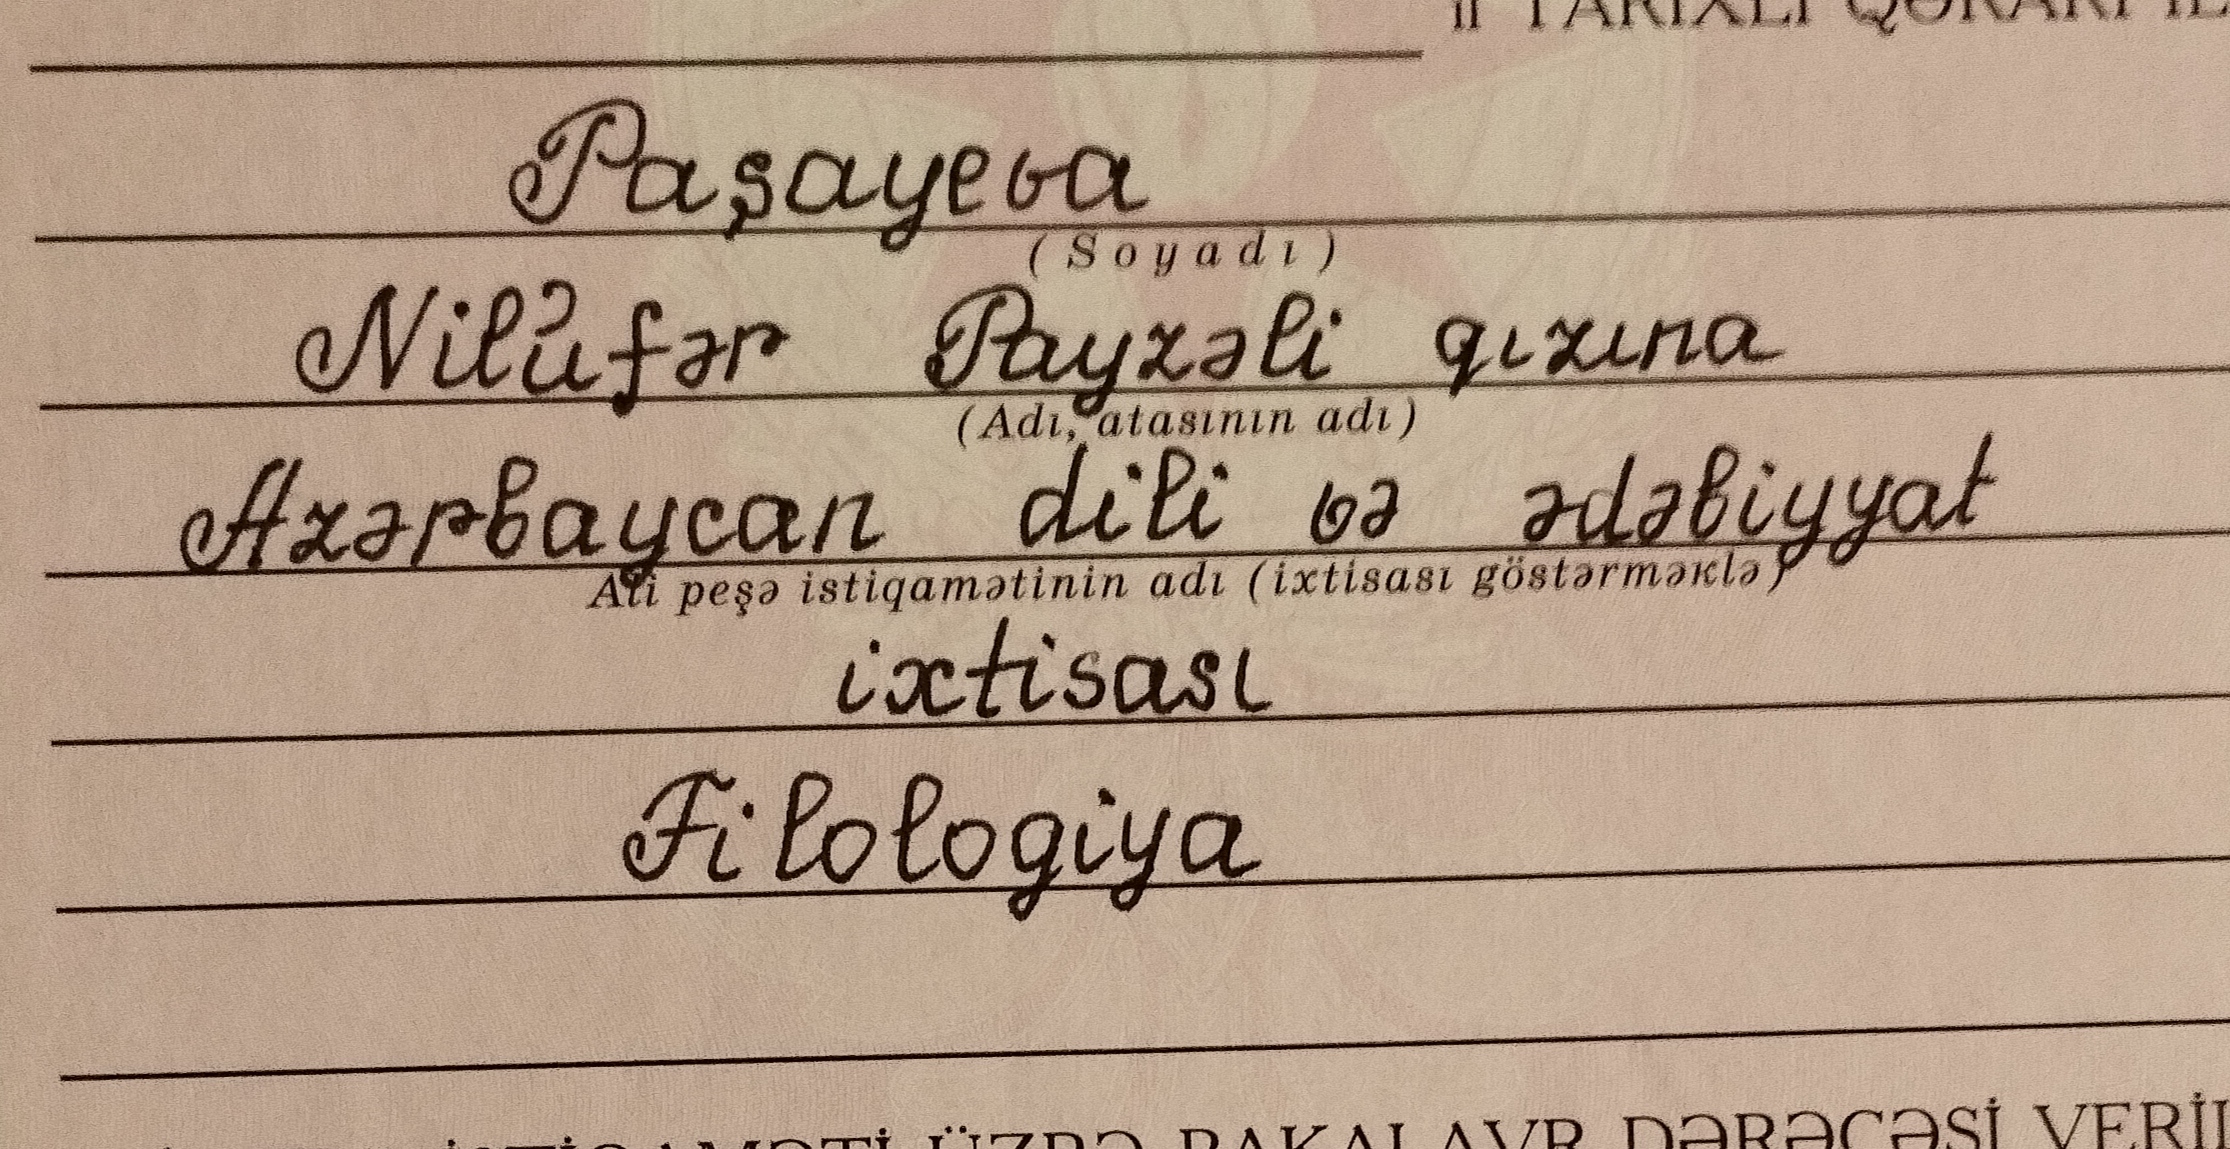 İL TARİXLİ QƏRARI İLƏ
Paşayeva
(Soyadı)
Nilüfər Payzəli qızına
(Adı, atasının adı)
Azərbaycan dili və ədəbiyyat
Ali peşə istiqamətinin adı (ixtisası göstərməklə)
ixtisası
Filologiya
İSTİQAMƏTİ ÜZRƏ BAKALAVR DƏRƏCƏSİ VERİL